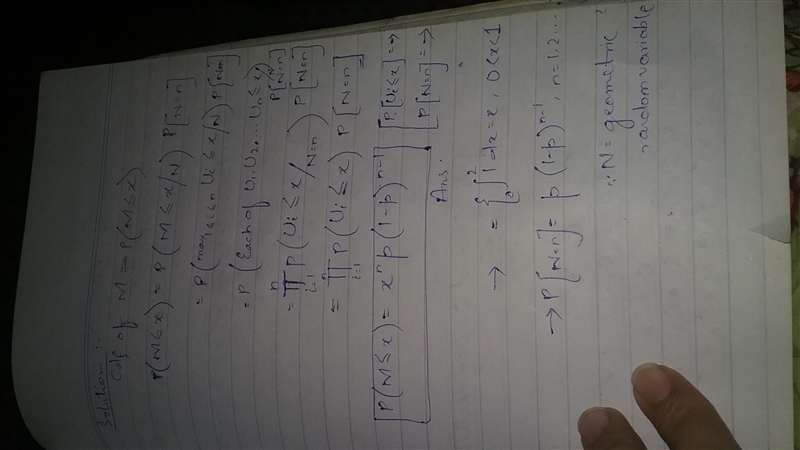 Solution:
Cdf of M = P(M≤x)
P(M≤x) = P(M≤x/N) P[N=n]
= P(max 1≤i≤n Ui≤x/N) P[N=n]
= P(Each of U1, U2, ... Un ≤x) P[N=n]
= n∏i=1 P(Ui≤x/N=n) P[N=n]
= n∏i=1 P(Ui≤x) P[N=n]
P(M≤x) = x^n p(1-p)^n-1 [P[Ui≤x] =→
[P[N=n] =→
Ans.
→ = {∫0^x 1 dx = x, 0<x<1
→ P[N=n] = p(1-p)^n-1, n=1,2...
∵ N = geometric
random variable